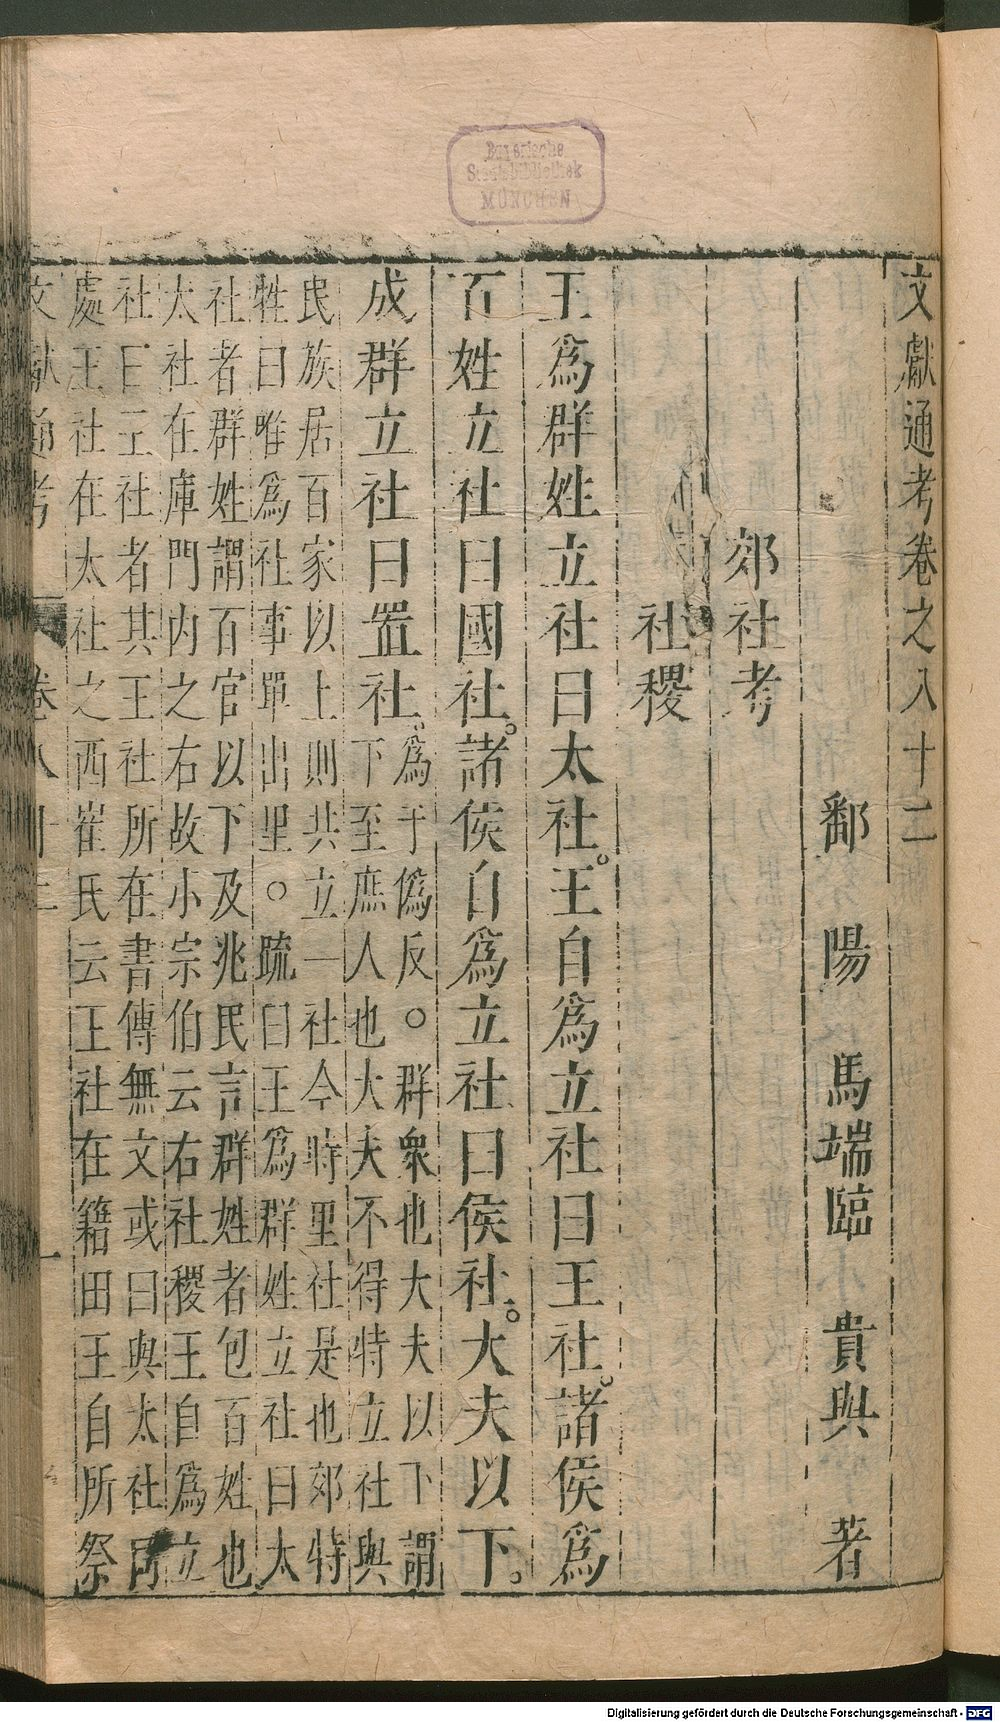 文獻通考卷之八十二
鄱陽馬端臨貴與著
郊社考
社稷
王爲群姓立社曰太社。王自爲立社曰王社。諸侯爲
百姓立社曰國社。諸侯自爲立社曰侯社。大夫以下。
成群立社曰置社。
爲于僞反○群衆也大夫以下謂
下至庶人也大夫不得特立社與
民族居百家以上則共立一社今時里社是也郊特
牲曰唯爲社事單出里○疏曰王爲群姓立社曰太
社者群姓謂百官以下及兆民言群姓者包百姓也
太社在庫門內之右故小宗伯云右社稷王自爲立
社曰王社者其王社所在書傳無文或曰與太社同
處王社在太社之西崔氏云王社在籍田王自所祭
文獻通考
卷八十二
一
Bayerische
Staatsbibliothek
MÜNCHEN
Digitalisierung gefördert durch die Deutsche Forschungsgemeinschaft - DFG